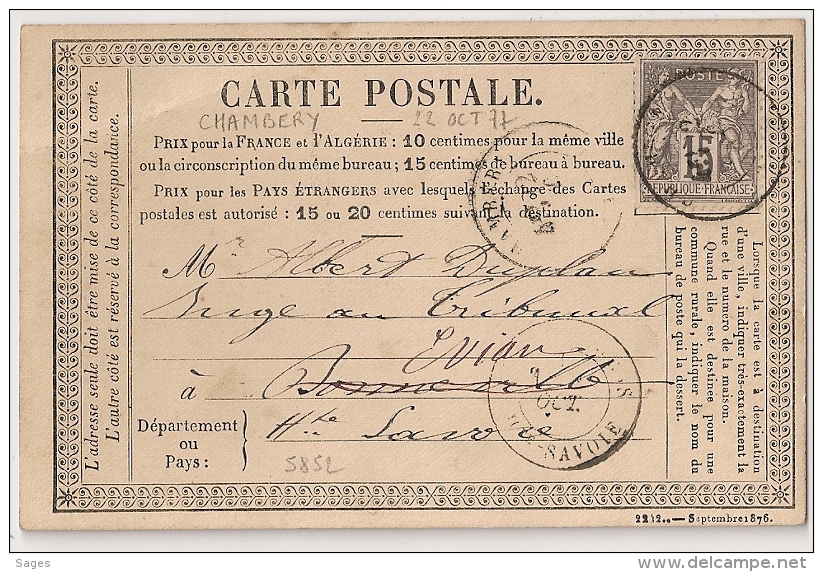 CARTE POSTALE.
CHAMBERY 22 OCT 77
PRIX pour la FRANCE et l'ALGÉRIE : 10 centimes pour la même ville
ou la circonscription du même bureau ; 15 centimes de bureau à bureau.
PRIX pour les PAYS ÉTRANGERS avec lesquels l'échange des Cartes
postales est autorisé : 15 ou 20 centimes suivant la destination.
POSTES
15
REPUBLIQUE FRANÇAISE
Mr Albert Duplan
Juge au Tribunal
Evian
à Bonneville
Hte Savoie
Département
ou
Pays :
5852
OCT.
SAVOIE
L'adresse seule doit être mise de ce côté de la carte.
L'autre côté est réservé à la correspondance.
Lorsque la carte est à destination
d'une ville, indiquer très-exactement la
rue et le numéro de la maison.
Quand elle est destinée pour une
commune rurale, indiquer le nom du
bureau de poste qui la dessert.
2212..— Septembre 1876.
Sages
delcampe.net